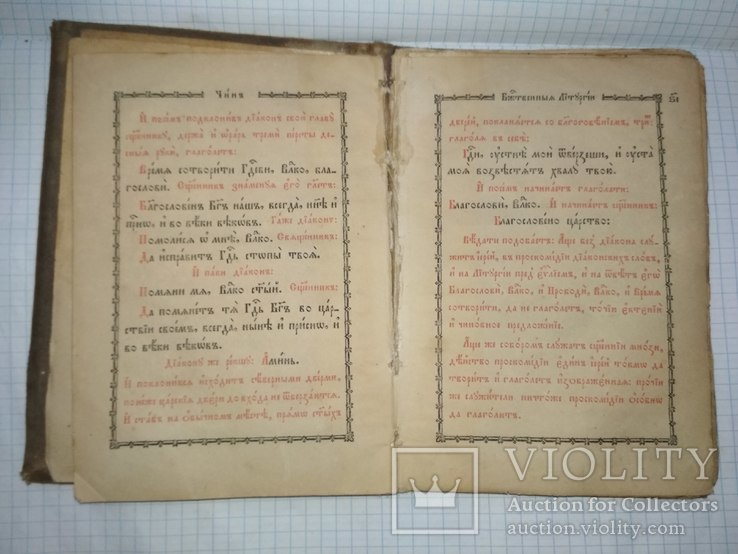 Чи́нъ
И҆ поем̾ подклони́въ дїа́конъ свою̀ главꙋ̀
сщ҃е́нникꙋ, держа̀ и҆ ѡ҆ра́рь тремѝ персты̀ де-
сны́ѧ рꙋкѝ, глаго́летъ:
Вре́мѧ сотвори́ти гдⷭ҇еви, влⷣко, бла-
гословѝ. Сщ҃е́нникъ зна́менꙋѧ є҆го̀ гл҃етъ:
Бл҃гослове́нъ бг҃ъ на́шъ, всегда̀, ны́нѣ и҆
при́снѡ, и҆ во вѣ́ки вѣкѡ́въ. Та́же дїа́конъ:
Помоли́сѧ ѡ҆ мнѣ̀, влⷣко. Свѧще́нникъ:
Да и҆спра́витъ гдⷭ҇ь стѡпы̀ твоѧ̑.
И҆ па́ки дїа́конъ:
Помѧнѝ мѧ̀, влⷣко ст҃ы́й. Сщ҃е́нникъ:
Да помѧне́тъ тѧ̀ гдⷭ҇ь бг҃ъ во ца́р-
ствїи свое́мъ, всегда̀, ны́нѣ и҆ при́снѡ, и҆
во вѣ́ки вѣкѡ́въ.
Дїа́конꙋ же ре́кшꙋ: А҆ми́нь.
И҆ поклони́всѧ и҆схо́дитъ сѣ́верными две́рми,
поне́же ца̑рскїѧ двє́ри до вхо́да не ѿверза́ютсѧ.
И҆ ста́въ на ѻ҆бы́чномъ мѣ́стѣ, прѧ́мѡ ст҃ы́хъ
Бжⷭ҇твенныѧ літꙋргі́и
две́рїй, покланѧ́етсѧ со бл҃гоговѣ́нїемъ, три́жды
глаго́лѧ въ себѣ̀:
Гдⷭ҇и, ᲂу҆стнѣ̀ моѝ ѿве́рзеши, и҆ ᲂу҆ста̀
моѧ̑ возвѣстѧ́тъ хвалꙋ̀ твою̀.
И҆ поем̾ начина́етъ глаго́лати:
Благословѝ, влⷣко. И҆ начина́етъ сщ҃е́нникъ:
Благослове́но ца́рство:
Вѣ́дати подоба́етъ: А҆́ще без̾ дїа́кона слꙋ́-
житъ і҆ере́й, въ проскомі́дїи дїа́конскихъ сло́въ,
и҆ на літꙋргі́и пред̾ є҆ѵⷢ҇лїемъ, и҆ на ѿвѣ́тъ є҆гѡ̀
Благословѝ, влⷣко, и҆ Прободѝ, влⷣко, и҆ Вре́мѧ
сотвори́ти, да не глаго́летъ, то́чїю є҆ктєнїѝ
и҆ чино́вное предложе́нїе.
А҆́ще же собо́ромъ слꙋ́жатъ сщ҃е́нницы мно́зи,
дѣ́йство проскомі́дїи є҆ди́нъ і҆ере́й то́кмѡ да
твори́тъ и҆ глаго́летъ и҆з̾ѡбраже́ннаѧ: про́чїи
же слꙋжи́тели ничто́же проскомі́дїи ѻ҆со́бнѡ
да глаго́лютъ.
VIOLITY
Auction for Collectors
auction.violity.com